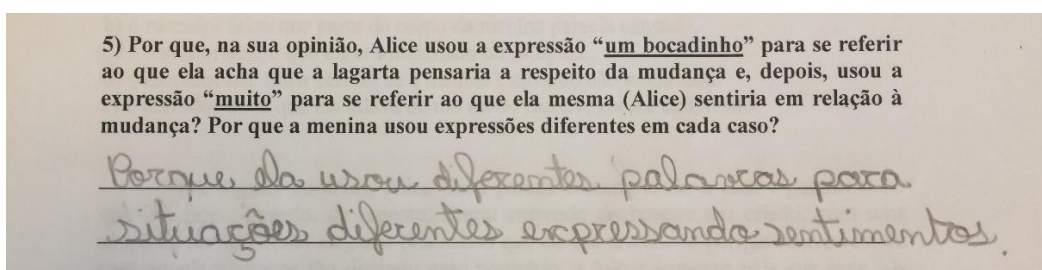 5) Por que, na sua opinião, Alice usou a expressão “um bocadinho” para se referir
ao que ela acha que a lagarta pensaria a respeito da mudança e, depois, usou a
expressão “muito” para se referir ao que ela mesma (Alice) sentiria em relação à
mudança? Por que a menina usou expressões diferentes em cada caso?
Porque ela usou diferentes palavras para
situações diferentes expressando sentimentos.